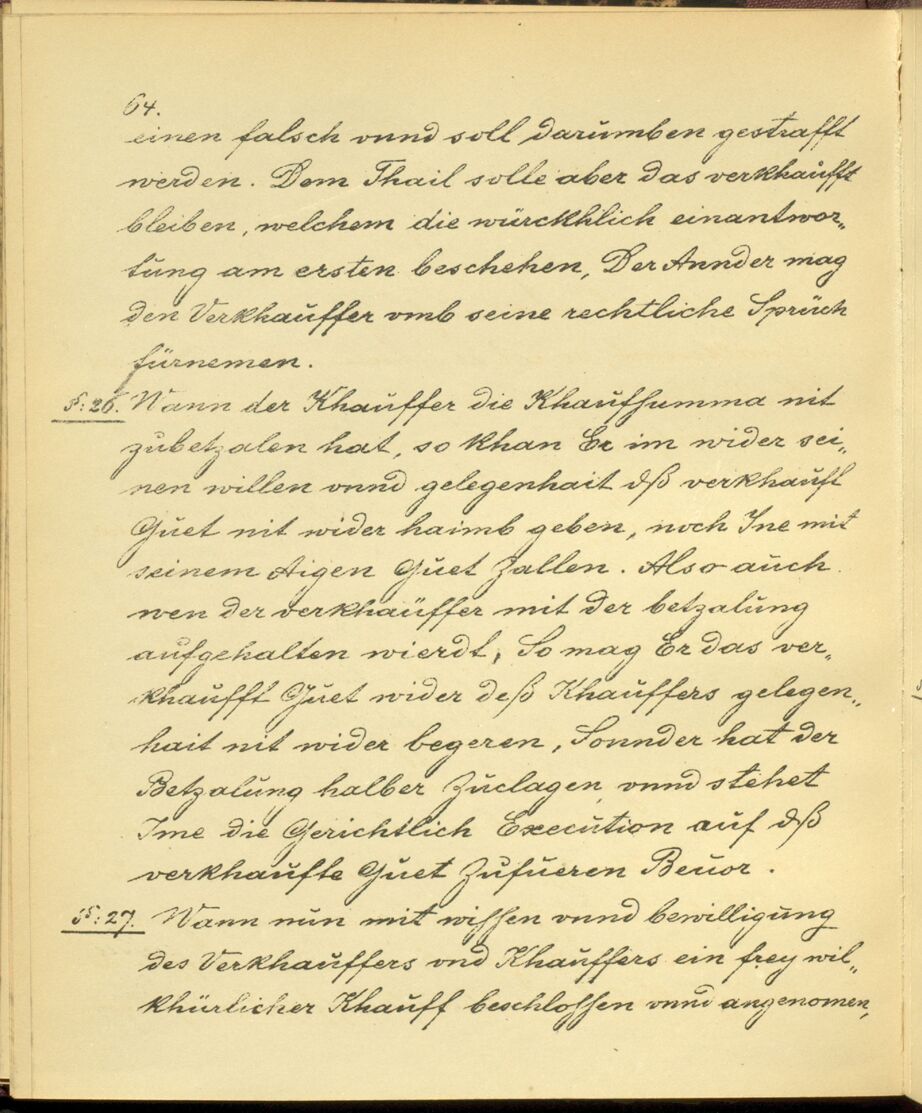 64.
einen falsch vnnd soll darumben gestrafft
werden. Dem Thail solle aber das verkhaufft
bleiben, welchem die würckhlich einantwor„
tung am ersten beschehen, Der Annder mag
den Verkhauffer vmb seine rechtliche Sprüch
fürnemen.
§: 26. Wann der Khauffer die Khaufsumma nit
zubetzalen hat, so khan Er im wider sei„
nen willen vnnd gelegenhait dß verkhauft
Guet nit wider haimb geben, noch Ine mit
seinem Aigen Guet Zallen. Also auch
wen der verkhaüffer mit der betzalung
aufgehalten wierdt, So mag Er das ver„
khaufft Guet wider deß Khauffers gelegen„
hait nit wider begeren, Sonnder hat der
Betzalung halber Zuclagen, vnnd stehet
Ime die Gerichtlich Execution auf dß
verkhaufte Guet Zufueren Beuor.
§: 27. Wann nun mit wissen vnnd bewilligung
des Verkhauffers vnd Khauffers ein frey wil„
khürlicher Khauff beschlossen vnnd angenomen,